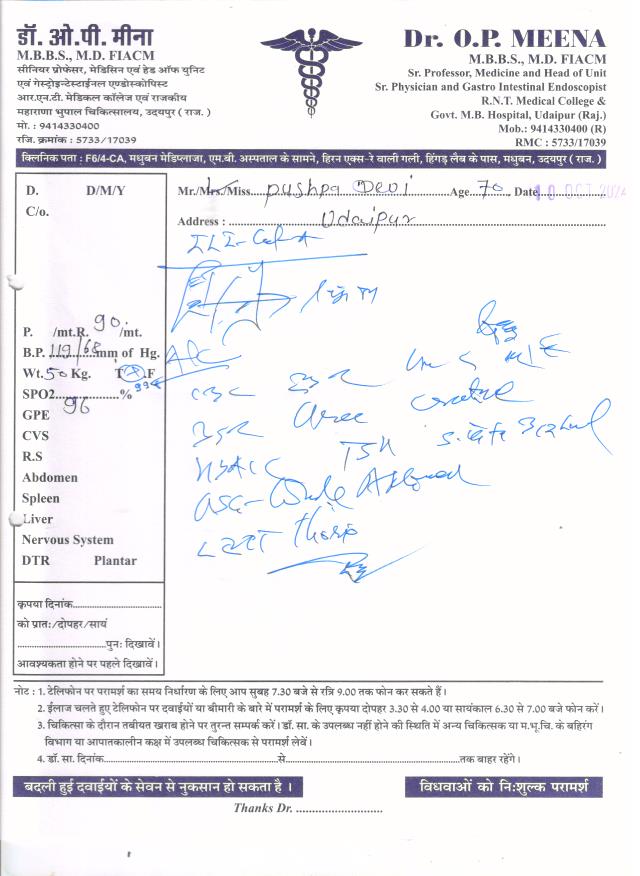 डॉ. ओ.पी. मीना
M.B.B.S., M.D. FIACM
सीनियर प्रोफेसर, मेडिसिन एवं हेड ऑफ यूनिट
एवं गेस्ट्रोइन्टेस्टाईनल एण्डोस्कोपिस्ट
आर.एन.टी. मेडिकल कॉलेज एवं राजकीय
महाराणा भुपाल चिकित्सालय, उदयपुर ( राज. )
मो. : 9414330400
रजि. क्रमांक : 5733/17039
Dr. O.P. MEENA
M.B.B.S., M.D. FIACM
Sr. Professor, Medicine and Head of Unit
Sr. Physician and Gastro Intestinal Endoscopist
R.N.T. Medical College &
Govt. M.B. Hospital, Udaipur (Raj.)
Mob.: 9414330400 (R)
RMC : 5733/17039
क्लिनिक पता : F6/4-CA, मधुबन मेडिप्लाजा, एम.बी. अस्पताल के सामने, हिरन एक्स-रे वाली गली, हिंगड़ लैब के पास, मधुबन, उदयपुर ( राज. )
D. D/M/Y
C/o.
Mr./Mrs./Miss. Pushpa Devi Age 70 Date 10 OCT 2024
Address : Udaipur
P. /mt.R. 90 /mt.
B.P. 119/68 mm of Hg.
Wt. 50 Kg. T F
SPO2 96 %
GPE
CVS
R.S
Abdomen
Spleen
Liver
Nervous System
DTR Plantar
CBC
Urea
TSH
कृपया दिनांक
को प्रातः/दोपहर/सायं
पुनः दिखावें।
आवश्यकता होने पर पहले दिखावें।
नोट : 1. टेलिफोन पर परामर्श का समय निर्धारण के लिए आप सुबह 7.30 बजे से रात्रि 9.00 तक फोन कर सकते हैं।
2. ईलाज चलते हुए टेलिफोन पर दवाईयों या बीमारी के बारे में परामर्श के लिए कृपया दोपहर 3.30 से 4.00 या सायंकाल 6.30 से 7.00 बजे फोन करें।
3. चिकित्सा के दौरान तबीयत खराब होने पर तुरन्त सम्पर्क करें। डॉ. सा. के उपलब्ध नहीं होने की स्थिति में अन्य चिकित्सक या म.भू.चि. के बहिरंग
विभाग या आपातकालीन कक्ष में उपलब्ध चिकित्सक से परामर्श लेवें।
4. डॉ. सा. दिनांक से तक बाहर रहेंगे।
बदली हुई दवाईयों के सेवन से नुकसान हो सकता है ।
विधवाओं को निःशुल्क परामर्श
Thanks Dr.